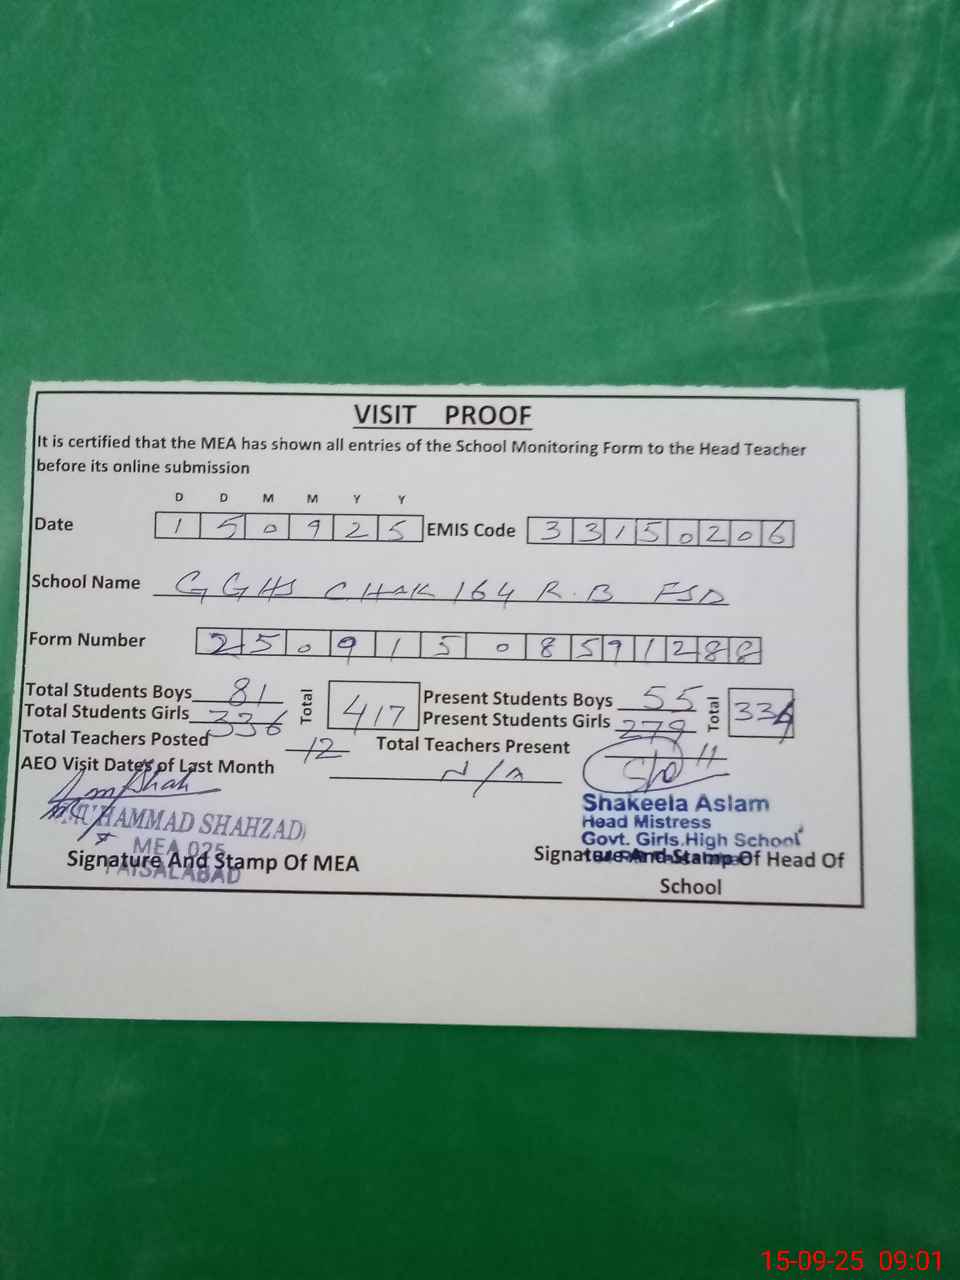 VISIT PROOF
It is certified that the MEA has shown all entries of the School Monitoring Form to the Head Teacher
before its online submission
D D M M Y Y
Date 1 5 0 9 2 5 EMIS Code 3 3 1 5 0 2 0 6
School Name GGHS CHAK 164 R.B FSD
Form Number 2 5 0 9 1 5 0 8 5 9 1 2 8 8
Total Students Boys 81 Total 417 Present Students Boys 55 Total 334
Total Students Girls 336 Present Students Girls 279
Total Teachers Posted 12 Total Teachers Present 11
AEO Visit Dates of Last Month N/A
MUHAMMAD SHAHZAD
MEA 025
FAISALABAD
Signature And Stamp Of MEA
Shakeela Aslam
Head Mistress
Govt. Girls.High School
Signature And Stamp Of Head Of
School
15-09-25 09:01